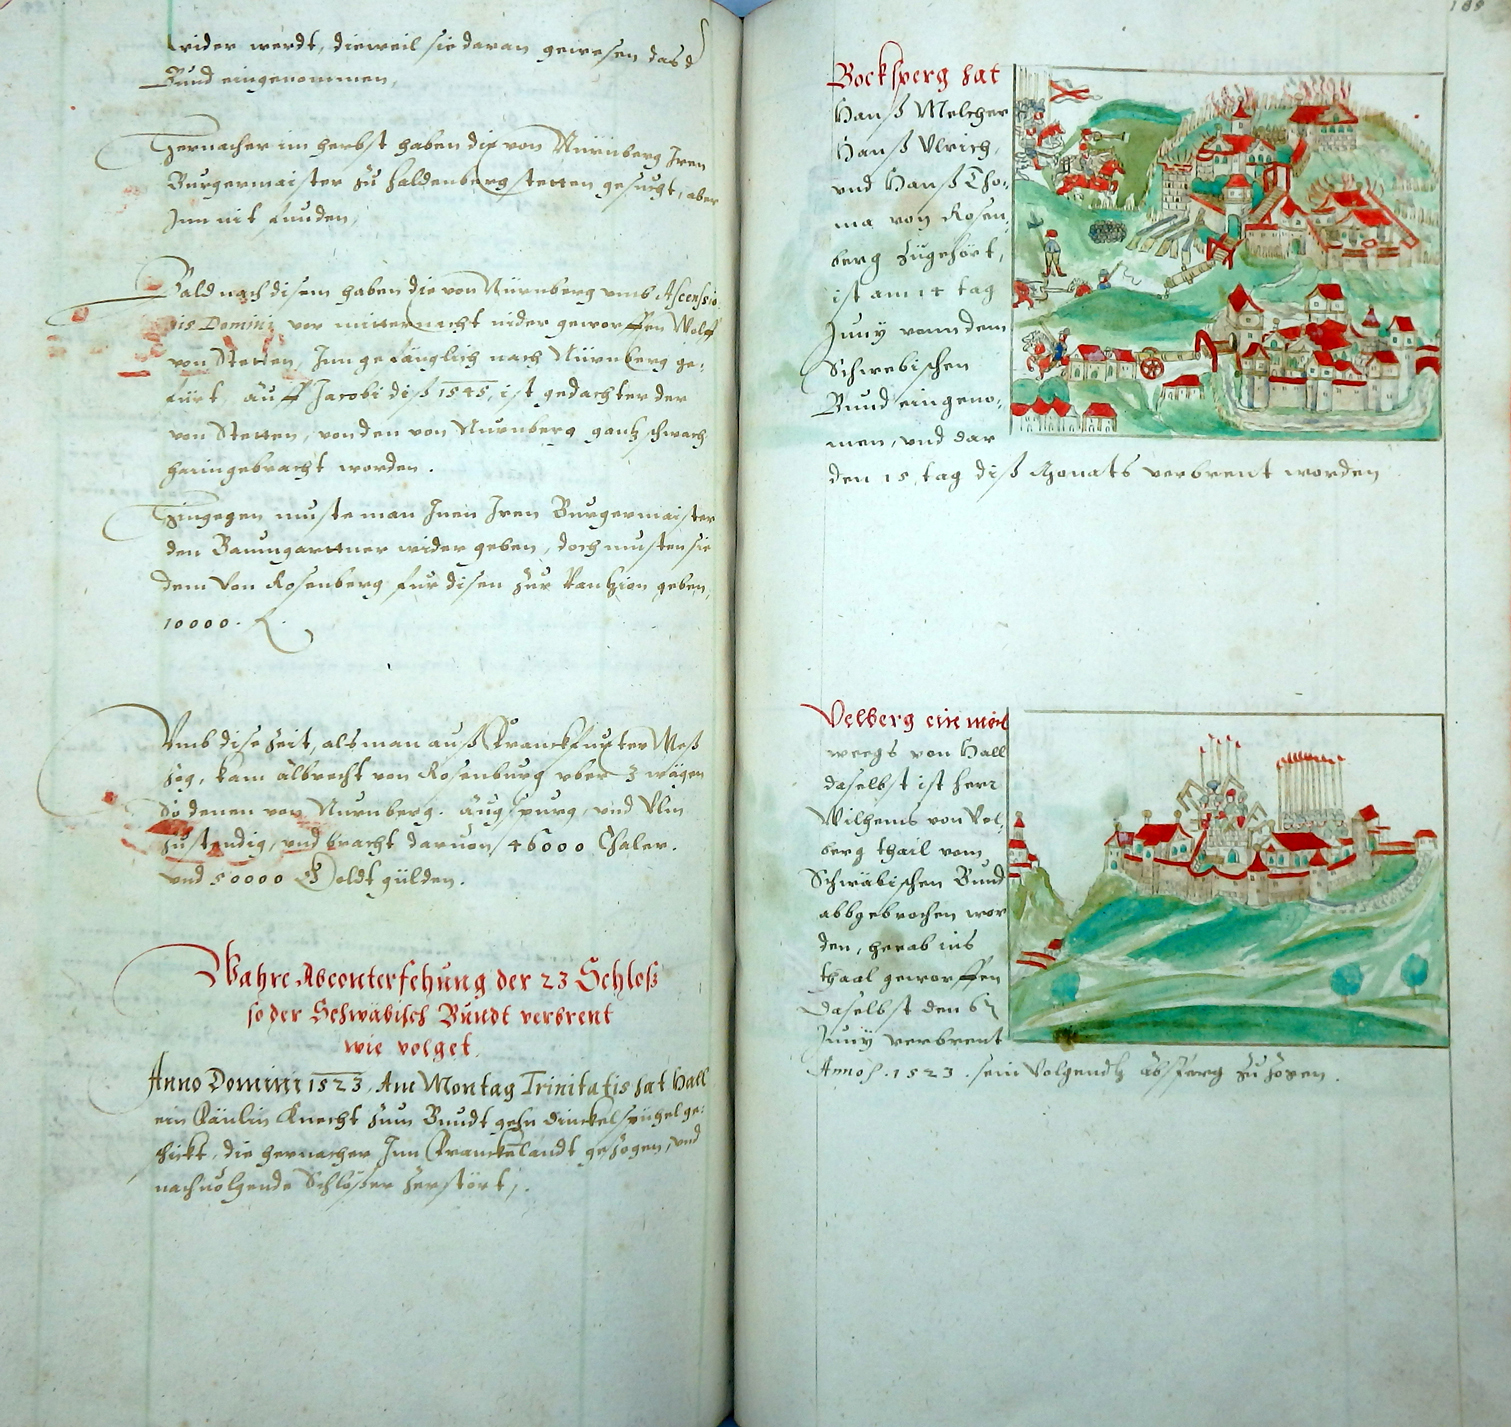 wider werdt, dieweil sie daran gewesen das d
Bund eingenommen,
Hernacher im herbst haben die von Nürnberg Iren
Burgermaister zu haldenbergstetten gesucht, aber
Inn nit funden,
Bald nach disem haben die von Nurnberg vmb Ascensio
nis Domini vor mitternacht nider geworffen Wolff
von Stetten, Inn gefänglich nach Nürnberg ge:
fürt, auff Jacobi diß 1545, ist gedachter der
von Stetten, von den von Nurnberg gantz schwach
haimgebracht worden.
Hingegen muste man Inen Iren Burgermaister
den Baumgarttner wider geben, doch musten sie
dem von Rosenberg fur disen zur Rantzion geben,
10000. fl.
Vmb dise zeit, als man auß Franckfurter Meß
zog, kam Albrecht von Rosenburg vber 3 wägen
so denen von Nurnberg. Augspurg, vnd Vlm
zustendig, vnd bracht daruon 46000 Thaler.
vnd 50000 Goldtgülden.
Wahre Abconterfehung der 23 Schloß
so der Schwäbisch Bundt verbrent
wie volget.
Anno Domini 1523. Am Montag Trinitatis hat Hall
ein Fäulin Knecht zum Bundt gehn Dinckelspühel ge:
schickt, die hernacher Inn Franckelandt gezogen, vnd
nachuolgende Schlösser zerstört,.
189
Bocksperg hat
Hanß Melcher
Hanß Vlrich,
vnd Hanß Tho:
ma von Rosen,
berg zugehört,
ist am 14 tag
Juny vonn dem
Schwebischen
Bund eingeno:
men, vnd dar
den 15, tag diß Monats verbrent worden
Velberg ein meil
weegs von Hall
daselbst ist herr
Wilhems von Vel,
berg thail vom
Schwäbischen Bund
abbgebrochen wor
den, herab ins
thaal geworffen
daselbst den 6
Juny verbrent
Anno 1523. sein Volgendtz